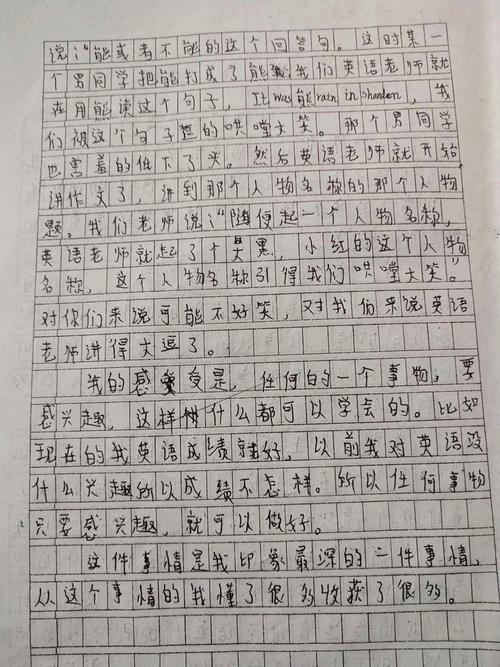 说:“能或者不能的这个回答句。这时某一
个男同学把能打成了熊,我们英语老师就
在用熊读这个句子,It was熊rain in shandon,我
们被这个句子逗的哄堂大笑。那个男同学
也害羞的低下了头。然后英语老师就开始
讲作文了,讲到那个人物名称的那个人物
题。我们老师说:“随便起一个人物名称,
英语老师就起了个昊黑,小红的这个人物
名称,这个人物名称引得我们哄堂大笑。”
对你们来说可能不好笑,对我们来说英语
老师讲得太逗了。
我的感受是,任何的一个事物,要
感兴趣,这样什么都可以学会的。比如
现在的我英语成绩就好,以前我对英语没
什么兴趣所以成绩不怎样。所以任何事物
只要感兴趣,就可以做好。
这件事情是我印象最深的一件事情,
从这个事情的我懂了很多收获了很多。